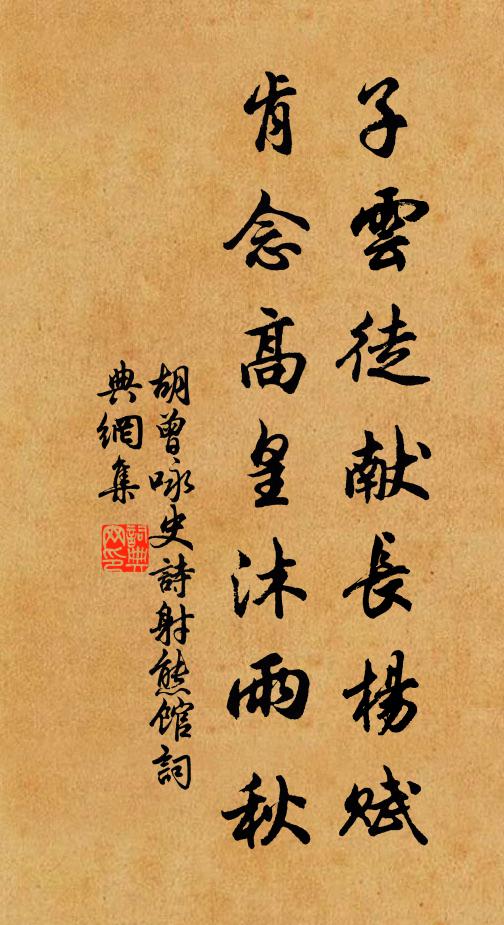 子雲徒献長楊赋
肯念高皇沐雨秋
胡曾咏史詩射熊館詞
典網集
詞典
网印